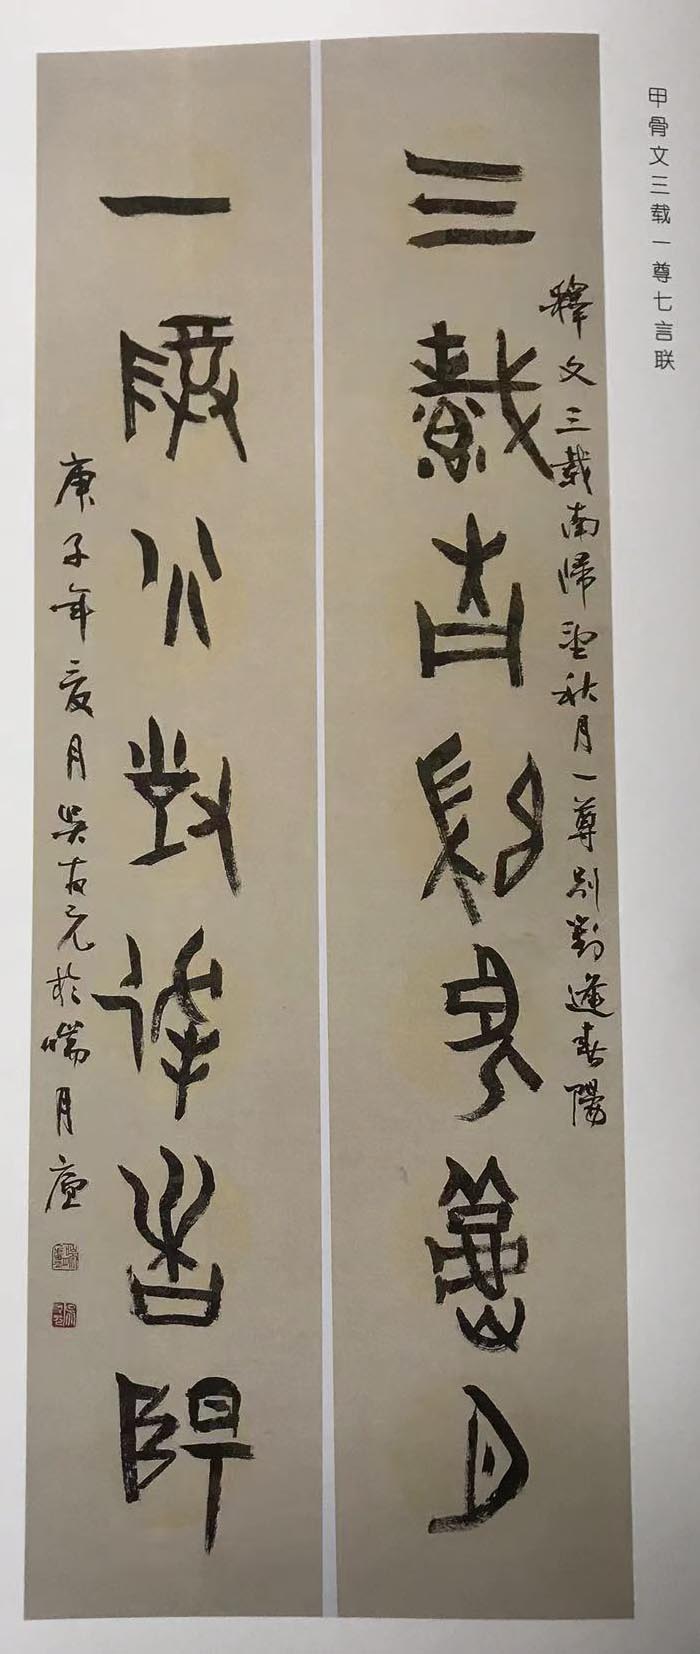 甲骨文三载一尊七言联
三載南歸望秋月
釋文三載南歸望秋月一尊別對逢春陽
一尊八對逢春陽
庚子年夏月吴友元於喘月廬